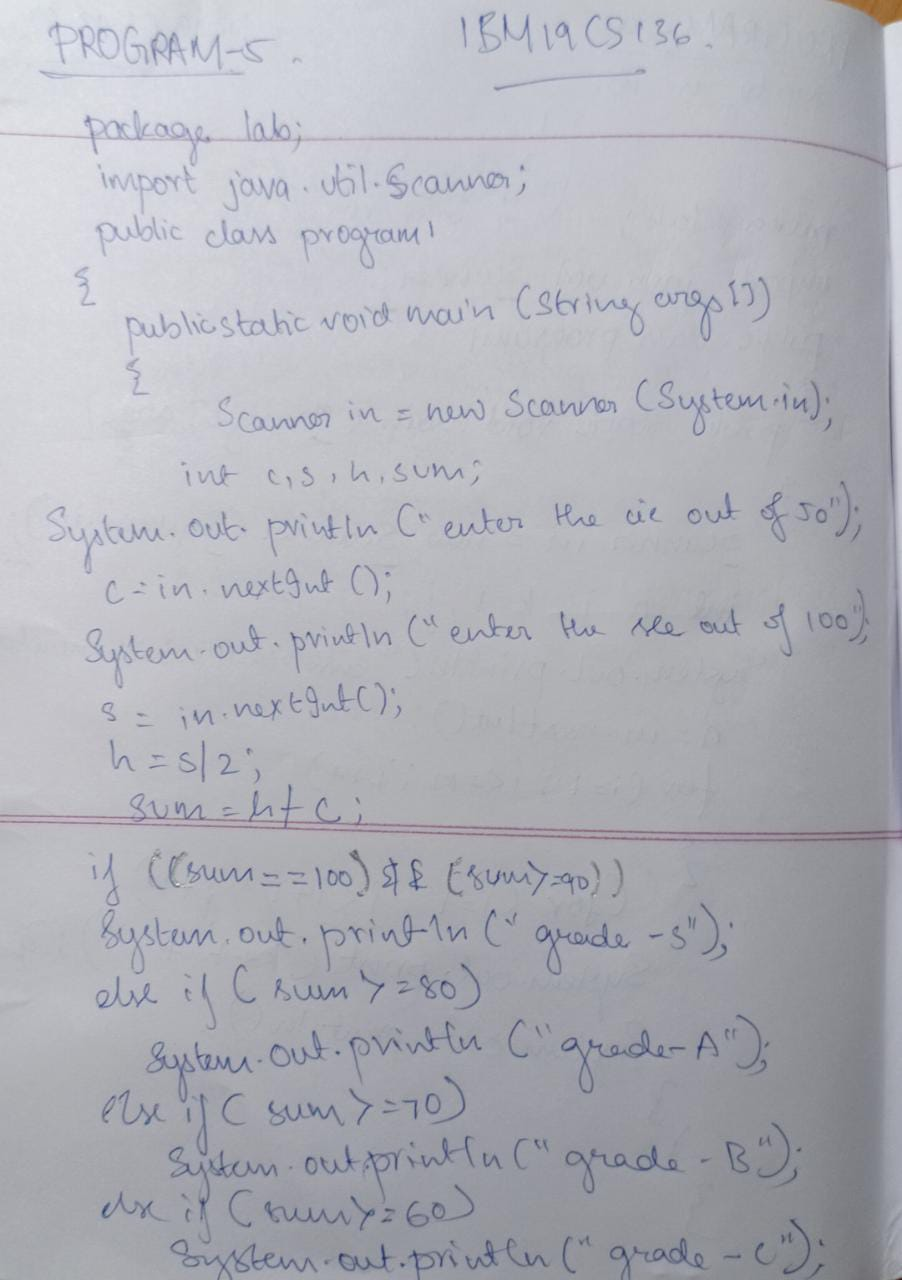 PROGRAM-5. 1BM19CS136.
package lab;
import java.util.Scanner;
public class program1
{
public static void main (String args [])
{
Scanner in = new Scanner (System.in);
int c,s,h,sum;
System.out.println ("enter the cie out of 50");
c = in.nextInt ();
System.out.println ("enter the see out of 100");
s = in.nextInt();
h = s/2;
sum = h + c;
if ((sum==100) && (sum>=90))
System.out.println (" grade -S");
else if ( sum >=80)
System.out.println ("grade-A");
else if ( sum >=70)
System.out.println (" grade - B");
else if (sum>=60)
System.out.println (" grade - C");